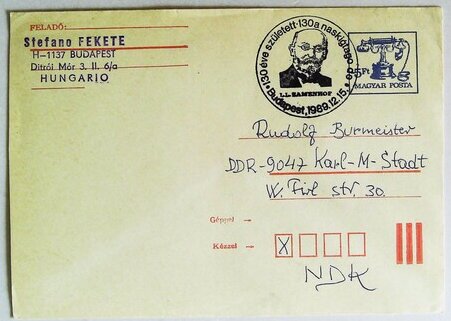 FELADÓ:
Stefano FEKETE
H-1137 BUDAPEST
Ditrói Mór 3. II. 6/a
HUNGARIO
130 éve született·130a naskiĝtago
L.L. ZAMENHOF
Budapest, 1989.12.15.
5Ft
MAGYAR POSTA
Rudolf Burmeister
DDR-9047 Karl-M-Stadt
W. Firl str. 30.
Géppel
Kézzel
X
NDK